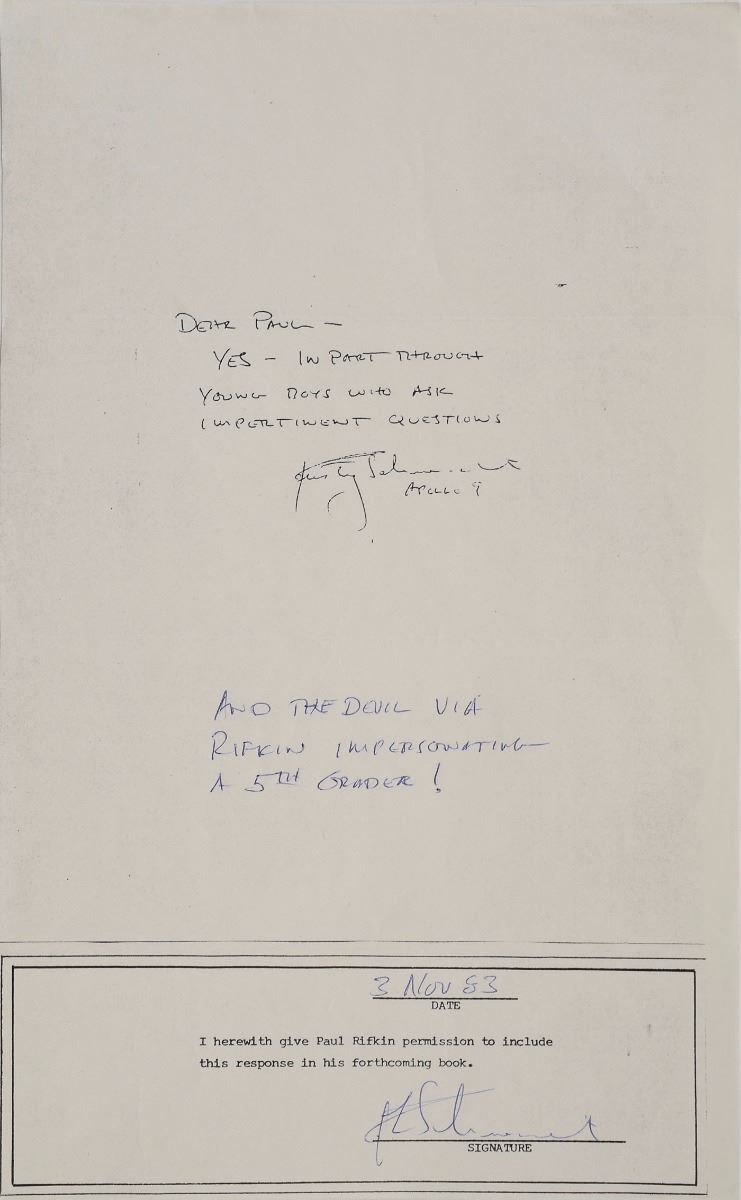 DEAR PAUL —
YES — IN PART THROUGH
YOUNG BOYS WHO ASK
IMPERTINENT QUESTIONS
Rusty Schweickart
APOLLO 9
AND THE DEVIL VIA
RIFKIN IMPERSONATING
A 5TH GRADER!
3 NOV 83
DATE
I herewith give Paul Rifkin permission to include
this response in his forthcoming book.
SIGNATURE